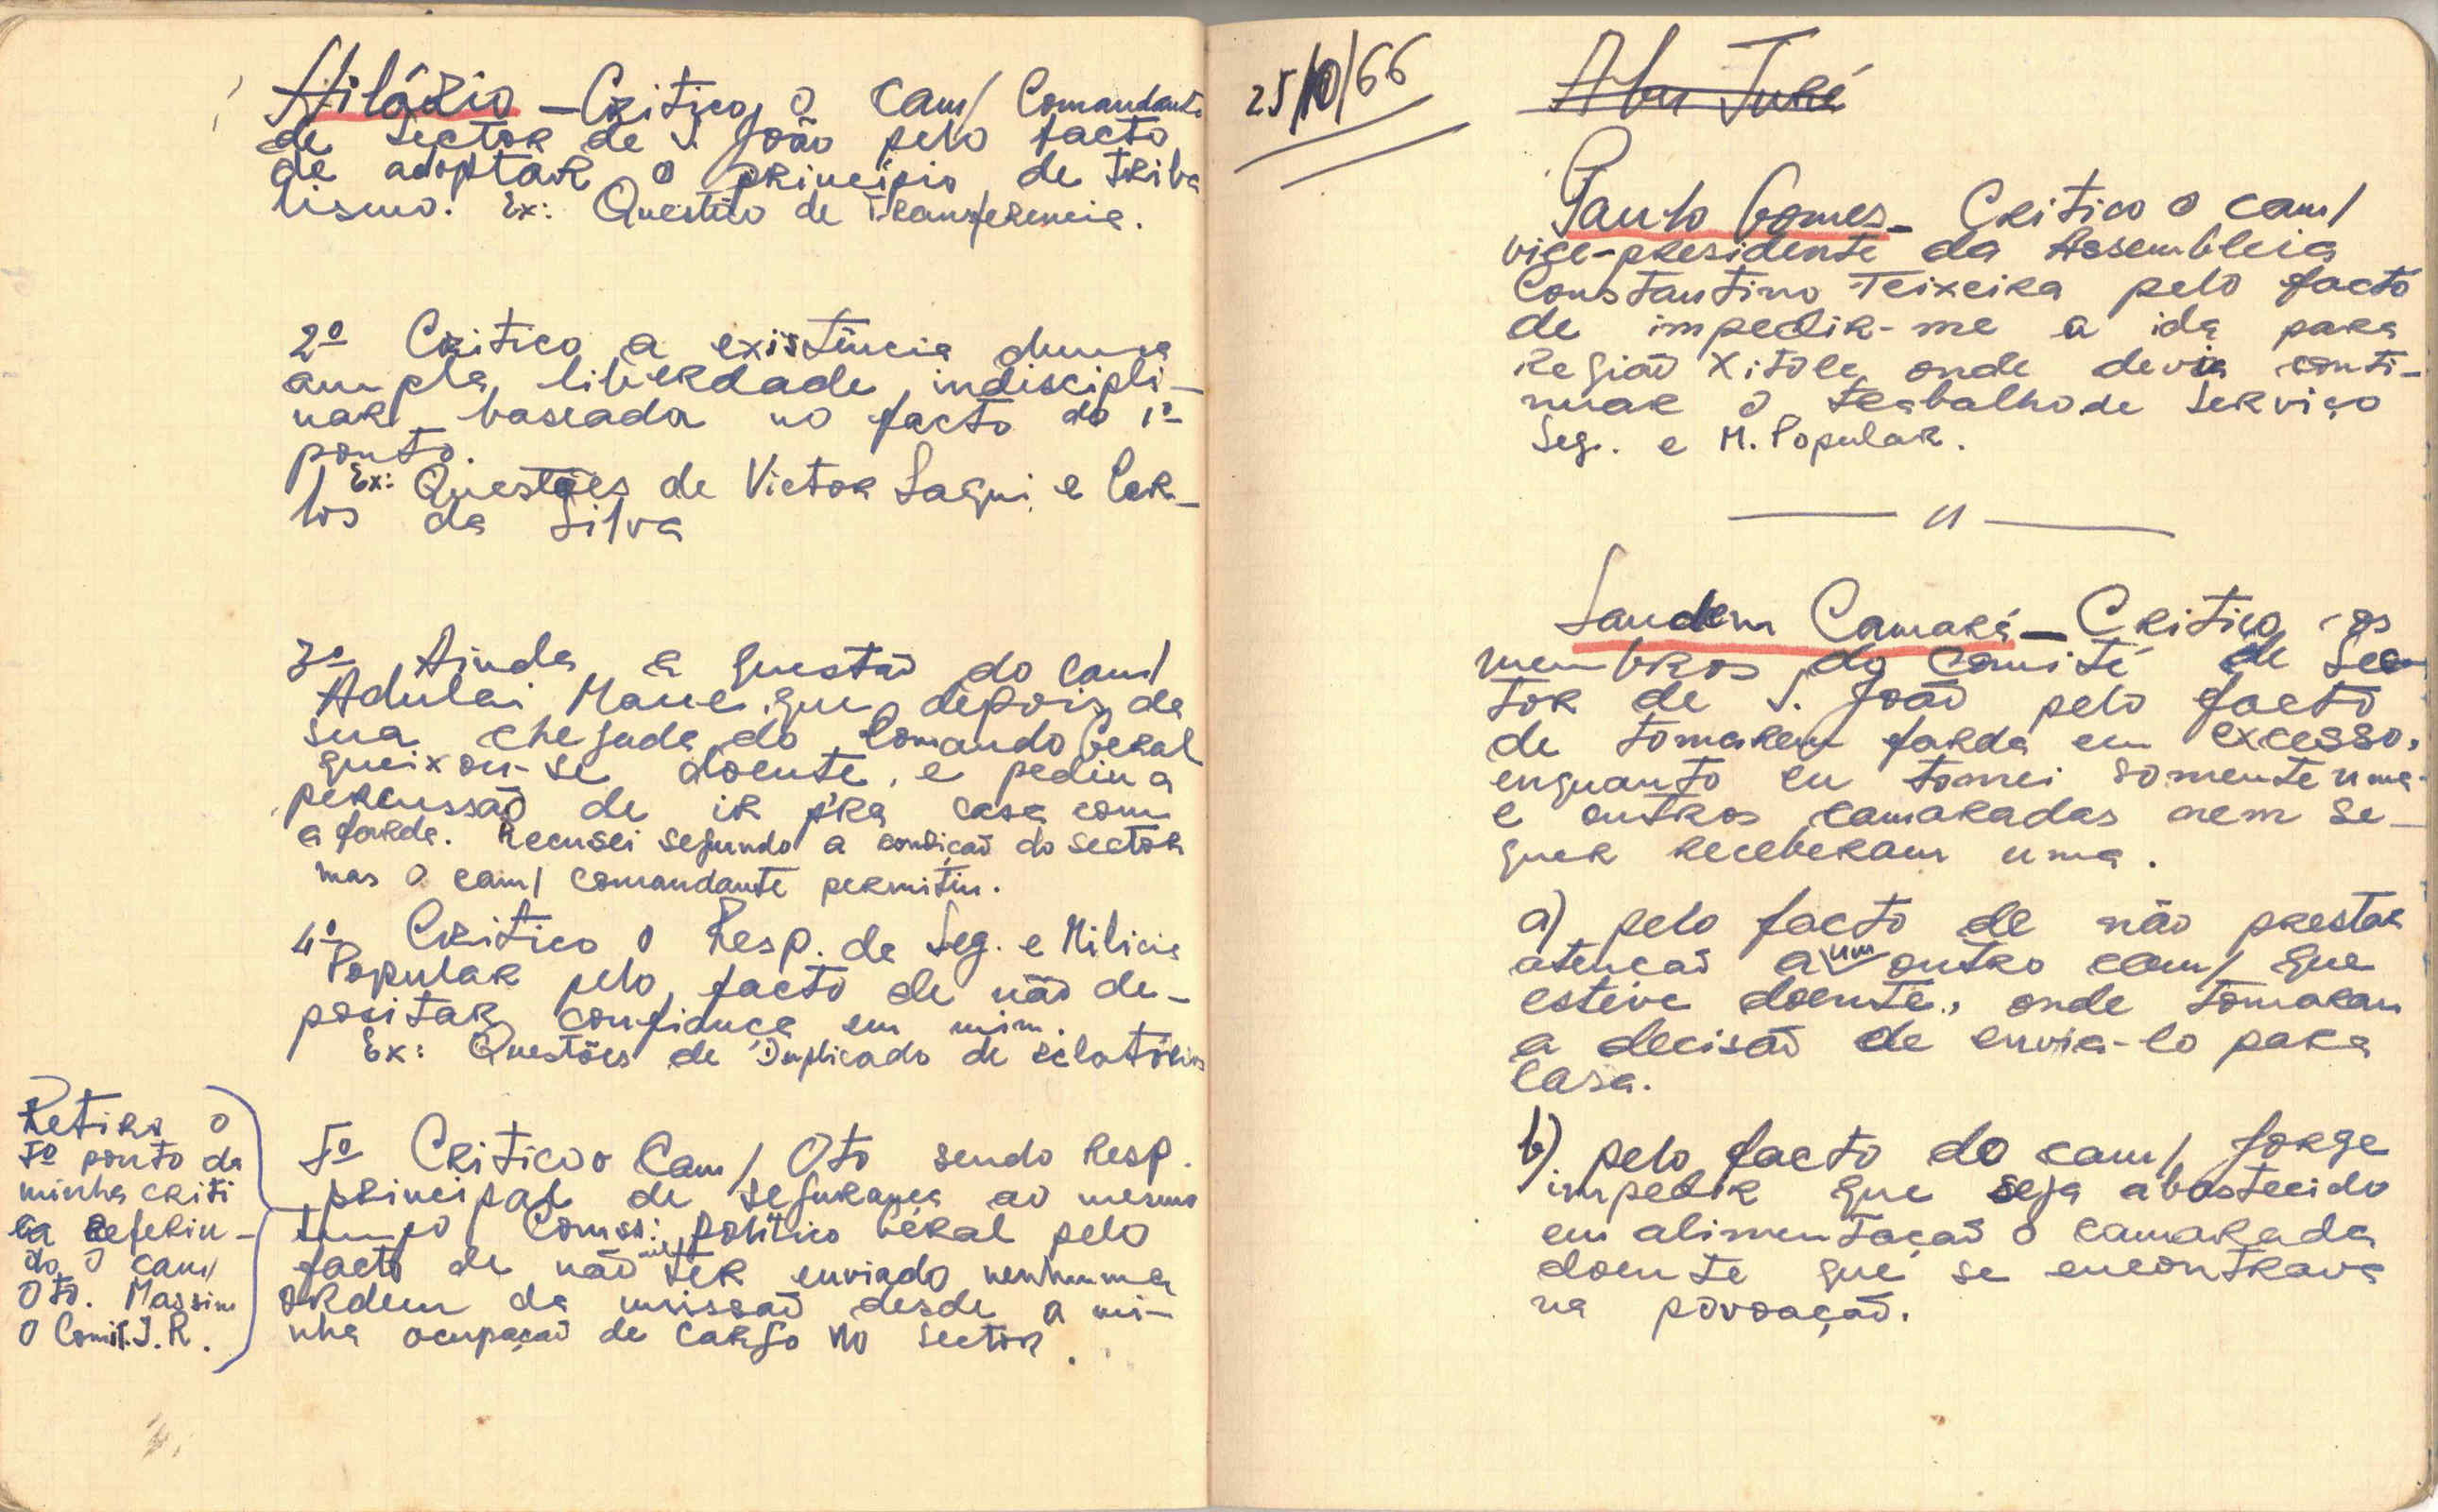 Hilário – Critico o cam/ Comandante
de Sector de S. João pelo facto
de adoptar o principio de triba
lismo. Ex: Questão de Transferencia.
2º Critico a existência duma
ampla liberdade indiscipli-
nar baseada no facto do 1º
ponto.
Ex: Questões de Victor Sagui e Car-
los da Silva
3º Ainda a questão do cam/
Adulai Mane que depois da
sua chegada do Comando Geral
queixou-se doente, e pediu a
percussão de ir p'ra casa com
a farda. Recusei segundo a condição do sector
mas o cam/ comandante permitiu.
4º Critico o Resp. de Seg. e Milicia
Popular pelo facto de não de-
positar confiança em mim.
Ex: Questões de Duplicado de relatórios
5º Critico o Cam/ Oto sendo Resp.
principal de segurança ao mesmo
tempo Comss: politico Geral pelo
facto de não me ter enviado nenhuma
ordem da missão desde a mi-
nha ocupação de cargo no sector.
Retiro o
5º ponto da
minha criti
ca referin-
do o cam/
Oto. Massim
o Comit. I. R.
25/10/66
Abu Turé
Paulo Gomes – Critico o cam/
vice-presidente da Assembleia
Constantino Teixeira pelo facto
de impedir-me a ida para
Região Xitole onde devia conti-
nuar o trabalho de Serviço
Seg. e M. Popular.
— 11 —
Camará – Critico os
membros do comité de Sec
tor de S. João pelo facto
de tomarem farda em excesso,
enquanto eu tomei somente uma
e outros camaradas nem se-
quer receberam uma.
a) pelo facto de não prestar
atenção a um outro cam/ que
esteve doente, onde tomaram
a decisão de envia-lo para
Casa.
b) pelo facto do cam/ Jorge
impedir que seja abastecido
em alimentação o camarada
doente que se encontrava
na povoação.